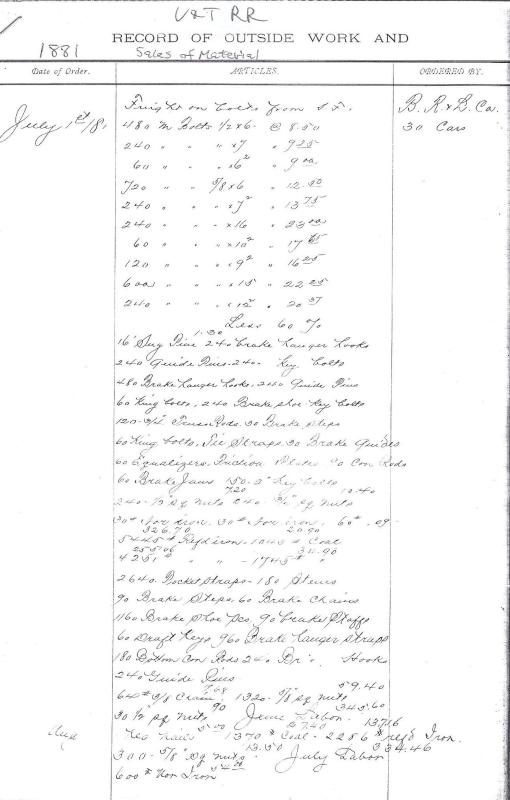 V&T RR
RECORD OF OUTSIDE WORK AND
1881 Sales of Material
Date of Order. ARTICLES. ORDERED BY.
Freight on bolts from S.F. B. R & L. Co.
July 1st/81 480 M Bolts 1/2 x 6 - @ 8.50 30 Cars
240 " " " x 7 " 9 25
60 " " " x 6 2 " 9 00
720 " " 5/8 x 6 " 12.50
240 " " " x 7 2 " 13 75
240 " " " x 16 " 23 00
60 " " " x 10 2 " 17 65
120 " " " x 9 2 " 16 25
600 " " " x 15 " 22 25
240 " " " x 12 2 "
Less 60 %
1.30
240 brake hanger hooks
240 Guide Pins - 240 - Key bolts
480 Brake hanger hooks, 240 Guide Pins
60 King bolts, 240 Brake shoe Key bolts
Truss Rods. 30 Brake Steps
60 King bolts, Tie Straps. 30 Brake Guides
60 Equalizers. Friction Plates Con Rods
60 Brake Jaws 150 - Key bolts
7.20 12.40
240 - 1/2 sq nuts 240 3/4 sq nuts
30# Nor iron. 30# Nor iron, 60# .09
326.70 20.90
5445# Refd iron. 1045# Coal
255.06 311.90
4251# " " - 1745# "
2640. Pocket Straps - 180 Stems
90 Brake Steps. 60 Brake Chains
1160 Brake Shoe pcs. 90 brake Staffs
60 Draft Keys 960 Brake hanger Straps
180 Bottom Con Rods 240 Hooks
240 Guide Pins
7.68 59.40
64# 3/8 Chain. 1320 - 5/8 sq nuts
90 343.60
30 1/2 sq nuts June Labor.
5.00 27.40
Aug 1370# Coal - 2286# refd Iron.
13.50 334.46
300 - 5/8" Sq nuts - July Labor
54.00
600# Nor Iron